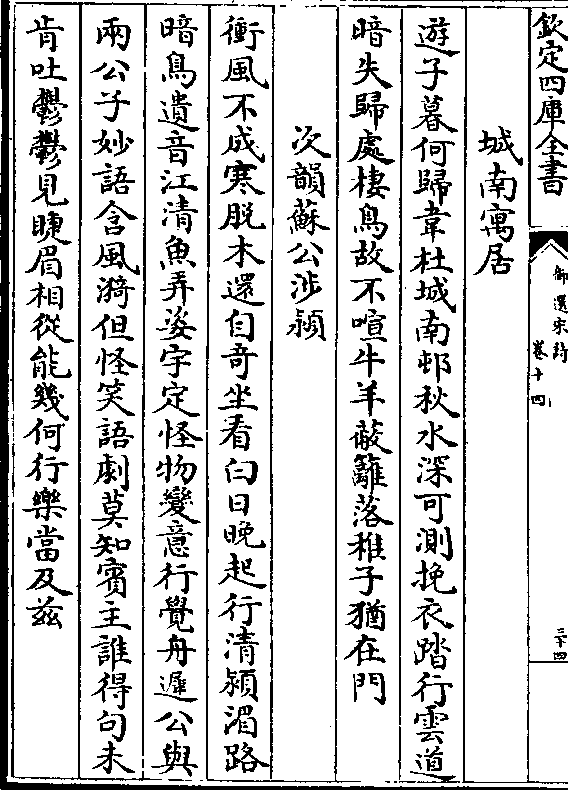 欽定四庫全書
御選宋詩
卷十四
三十四
城南寓居
遊子暮何歸韋杜城南邨秋水深可測挽衣踏行雲道
暗失歸處棲鳥故不喧牛羊蔽籬落稚子猶在門
次韻蘇公涉潁
衝風不成寒脱木還自奇坐看白日晚起行清潁湄路
暗鳥遺音江清魚弄姿宇定怪物變意行覺舟遲公與
兩公子妙語含風漪但怪笑語劇莫知賓主誰得句未
肯吐鬱鬱見睫眉相從能幾何行樂當及兹